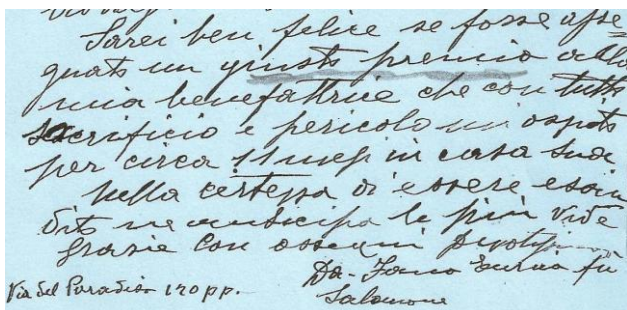 Sarei ben felice se fosse asse=
gnato un giusto premio alla
mia benefattrice che con tutto
sacrificio e pericolo mi ospitò
per circa 11 mesi in casa sua
Nella certezza di essere esau
dito ne anticipo le più vive
grazie con ossequi
Da-Fano Enrico fu
Via del Paradiso 170 pp.
Salomone